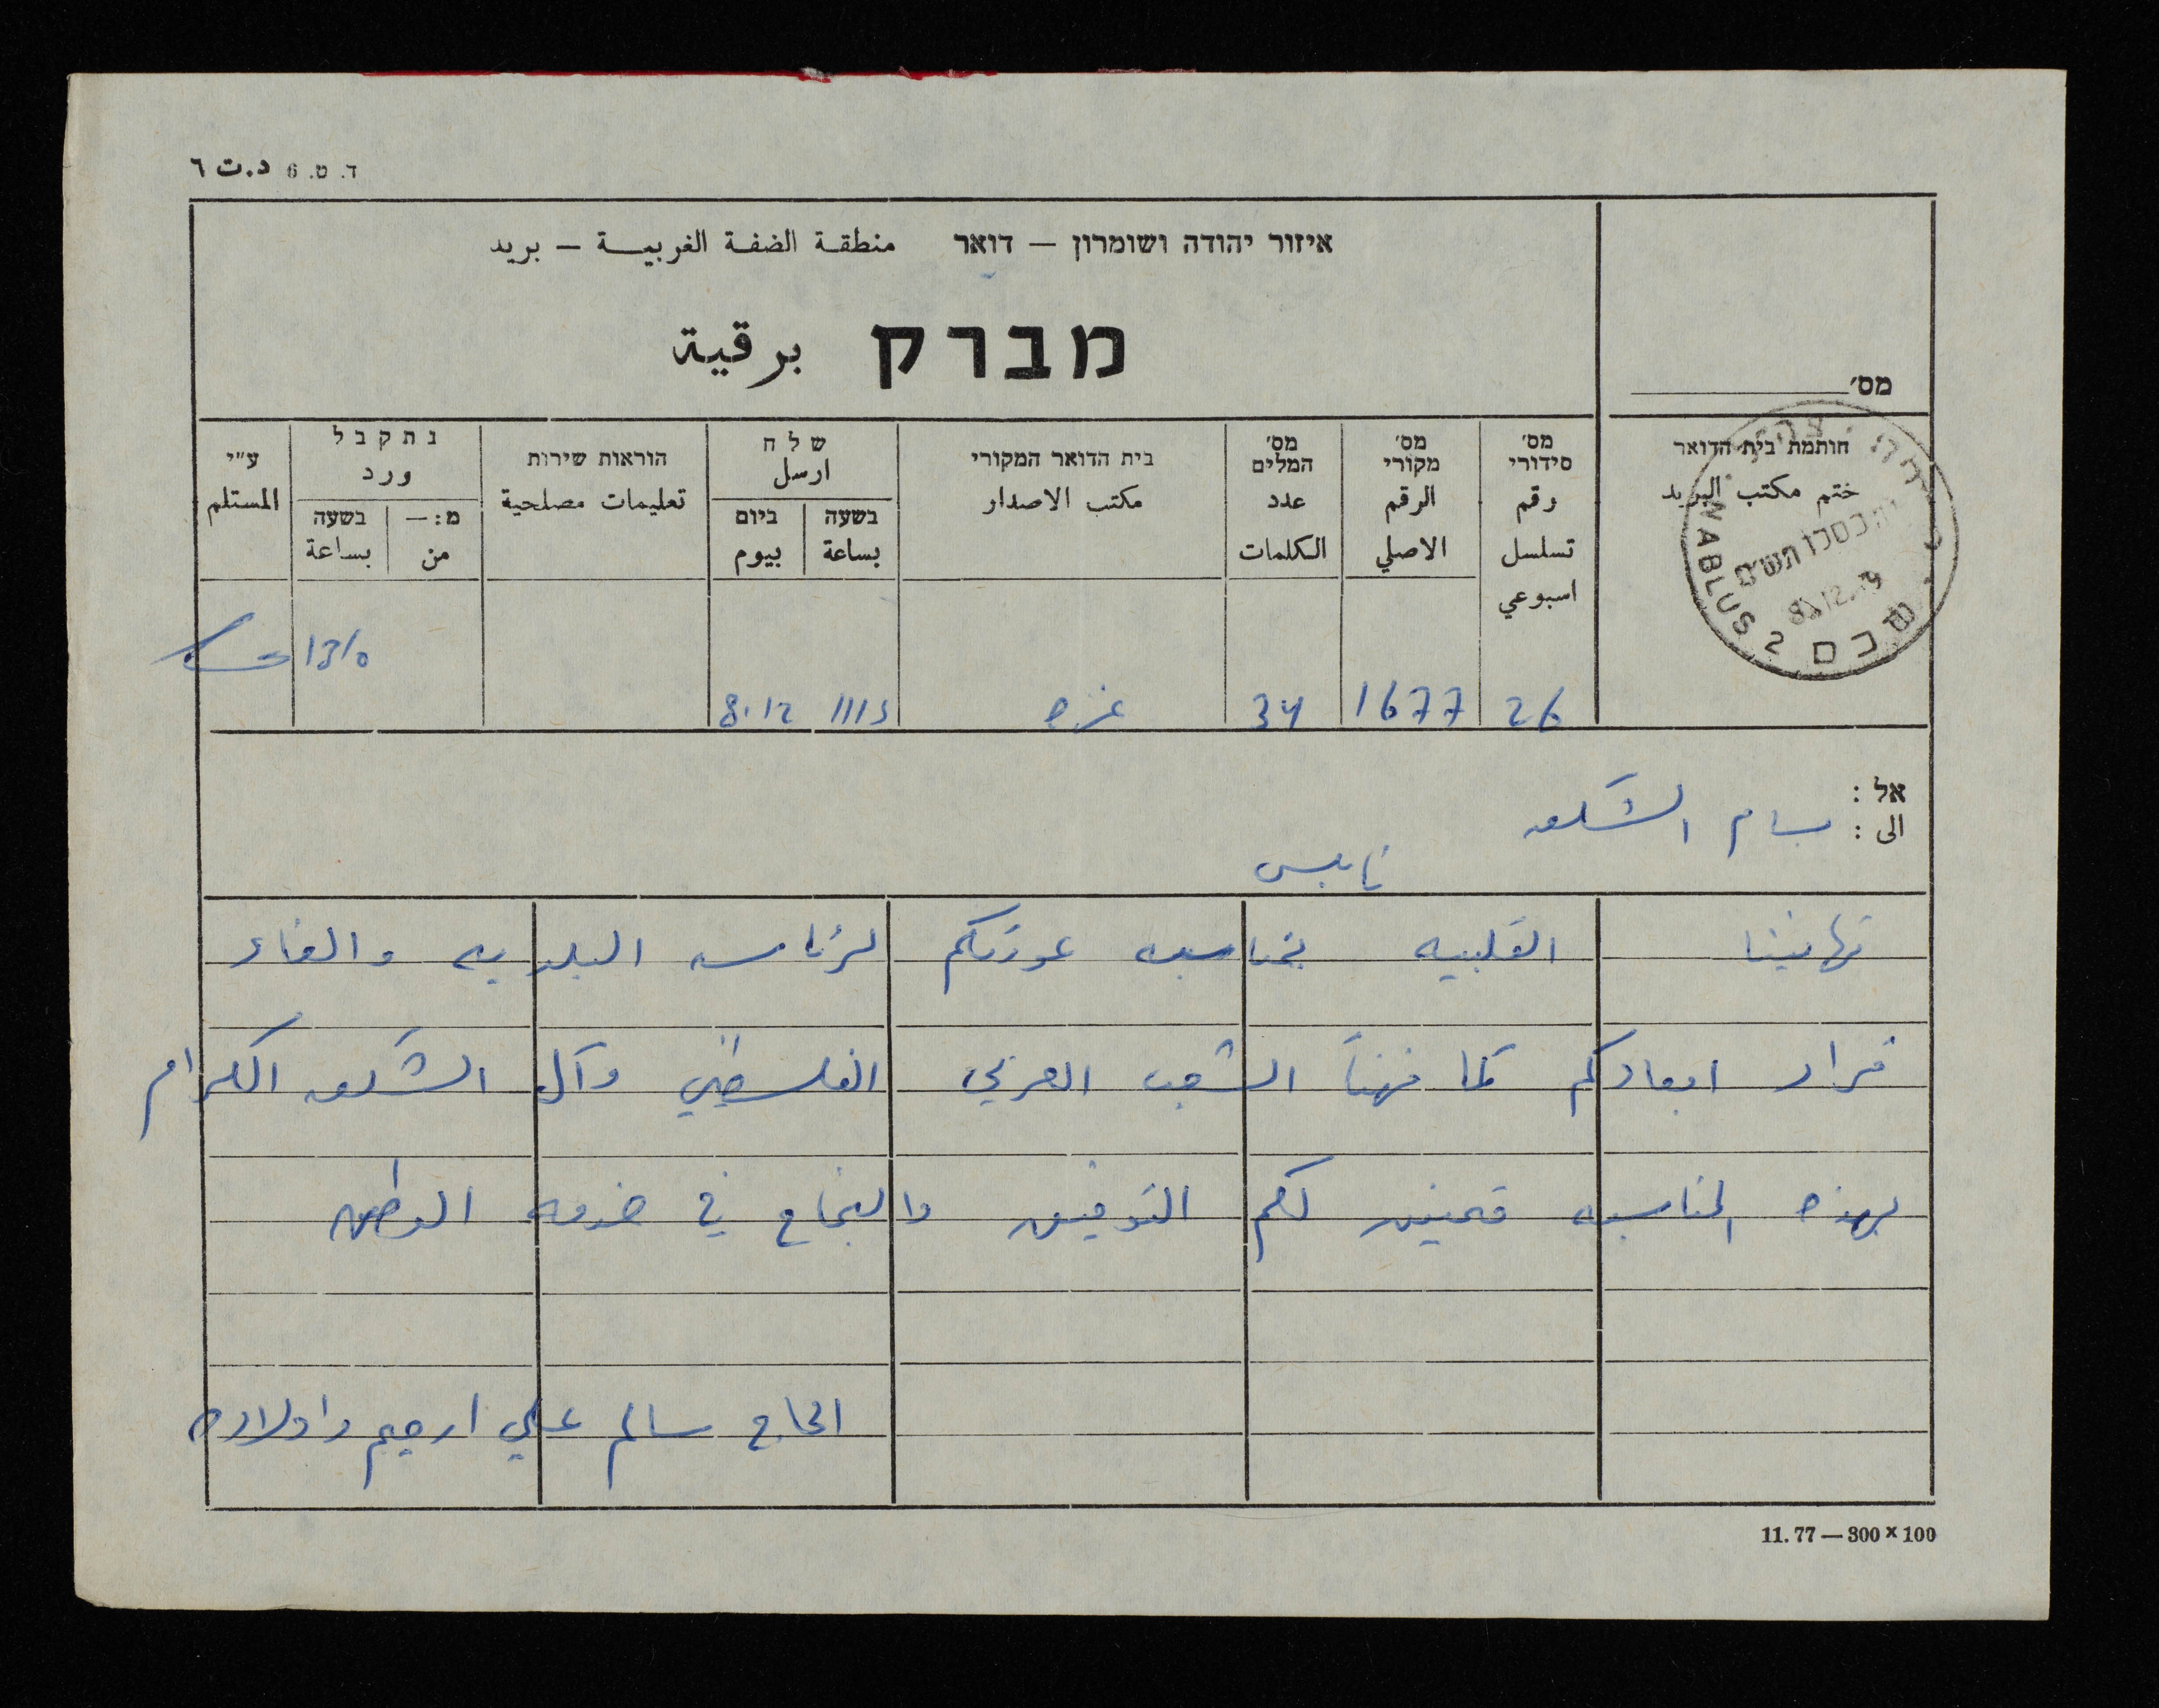 ד. ט. 6 د.ت ٦
איזור יהודה ושומרון — דואר منطقة الضفة الغربية — بريد
מברק برقية
מס׳
חותמת בית הדואר
ختم مكتب البريد
מס׳ סידורי
رقم تسلسل اسبوعي
מס׳ מקורי
الرقم الاصلي
מס׳ המלים
عدد الكلمات
בית הדואר המקורי
مكتب الاصدار
שלח
ارسل
בשעה
بساعة
ביום
بيوم
הוראות שירות
تعليمات مصلحية
נתקבל
ورد
מ: —
من
בשעה
بساعة
ע"י
المستلم
NABLUS 2 שכם
26 1677 34 غزه 1115 8.12 1310
אל :
الى : بسام الشكعه
نابلس
تهانينا القلبيه بمناسبه عودتكم لرئاسه البلديه والغاء
قرار ابعادكم كما نهنأ الشعب العربي الفلسطيني وآل الشكعه الكرام
بهذه المناسبه متمنين لكم التوفيق والنجاح في خدمه الوطن
الحاج سالم علي ارحيم واولاده
11. 77 — 300 × 100